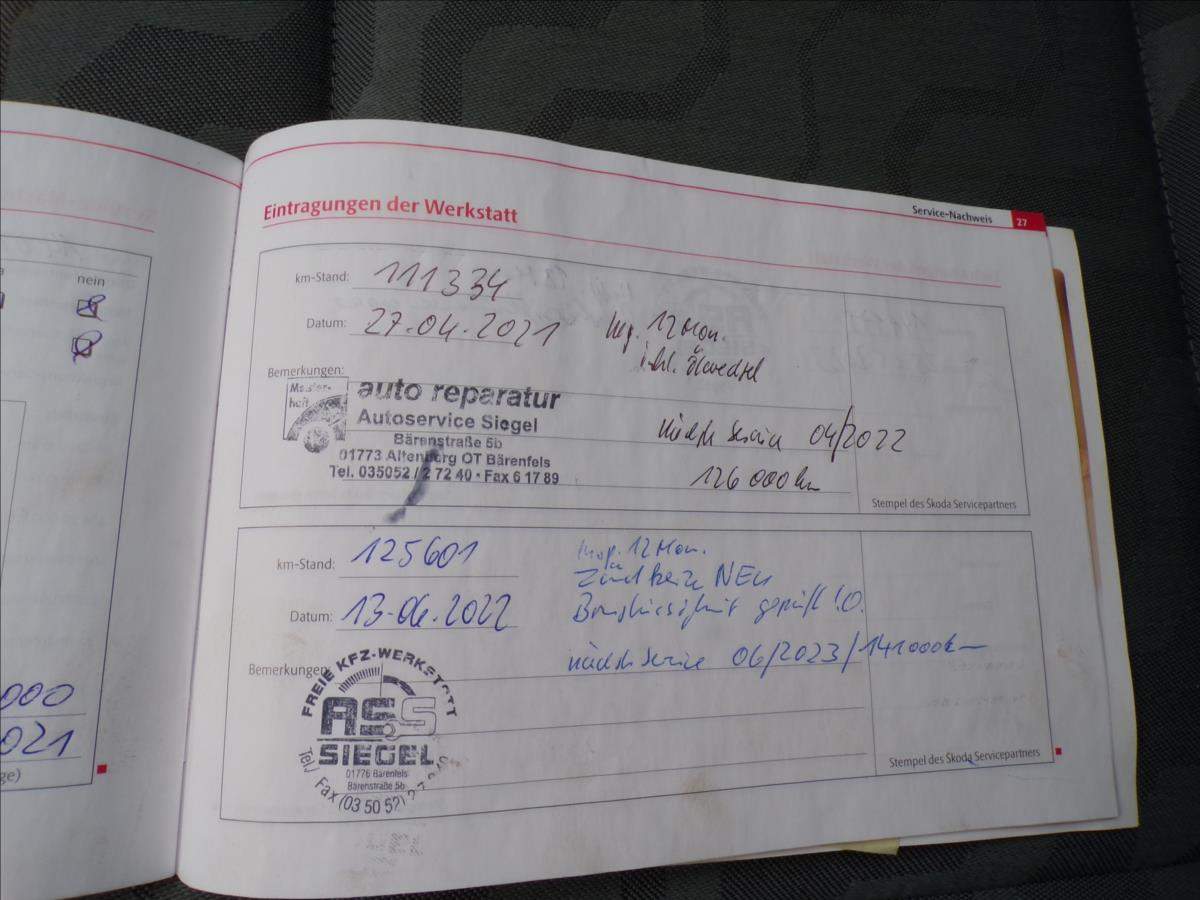 nein
000
021
ge)
Service-Nachweis 27
Eintragungen der Werkstatt
km-Stand: 111334
Datum: 27.04.2021
Insp. 12 Mon.
inkl. Ölwechsel
Bemerkungen:
Meister-
haft
auto reparatur
Autoservice Siegel
Bärenstraße 5b
01773 Altenberg OT Bärenfels
Tel. 035052 / 2 72 40 · Fax 6 17 89
nächste Service 04/2022
126 000 km
Stempel des Škoda Servicepartners
km-Stand: 125601
Insp. 12 Mon.
Zündkerze NEU
Datum: 13.06.2022
Bremsflüssigkeit geprüft i.O.
nächste Service 06/2023/141000km
Bemerkungen:
FREIE KFZ-WERKSTATT
ASS
SIEGEL
01776 Bärenfels
Bärenstraße 5b
Tel./ Fax (03 50 52)
Stempel des Škoda Servicepartners